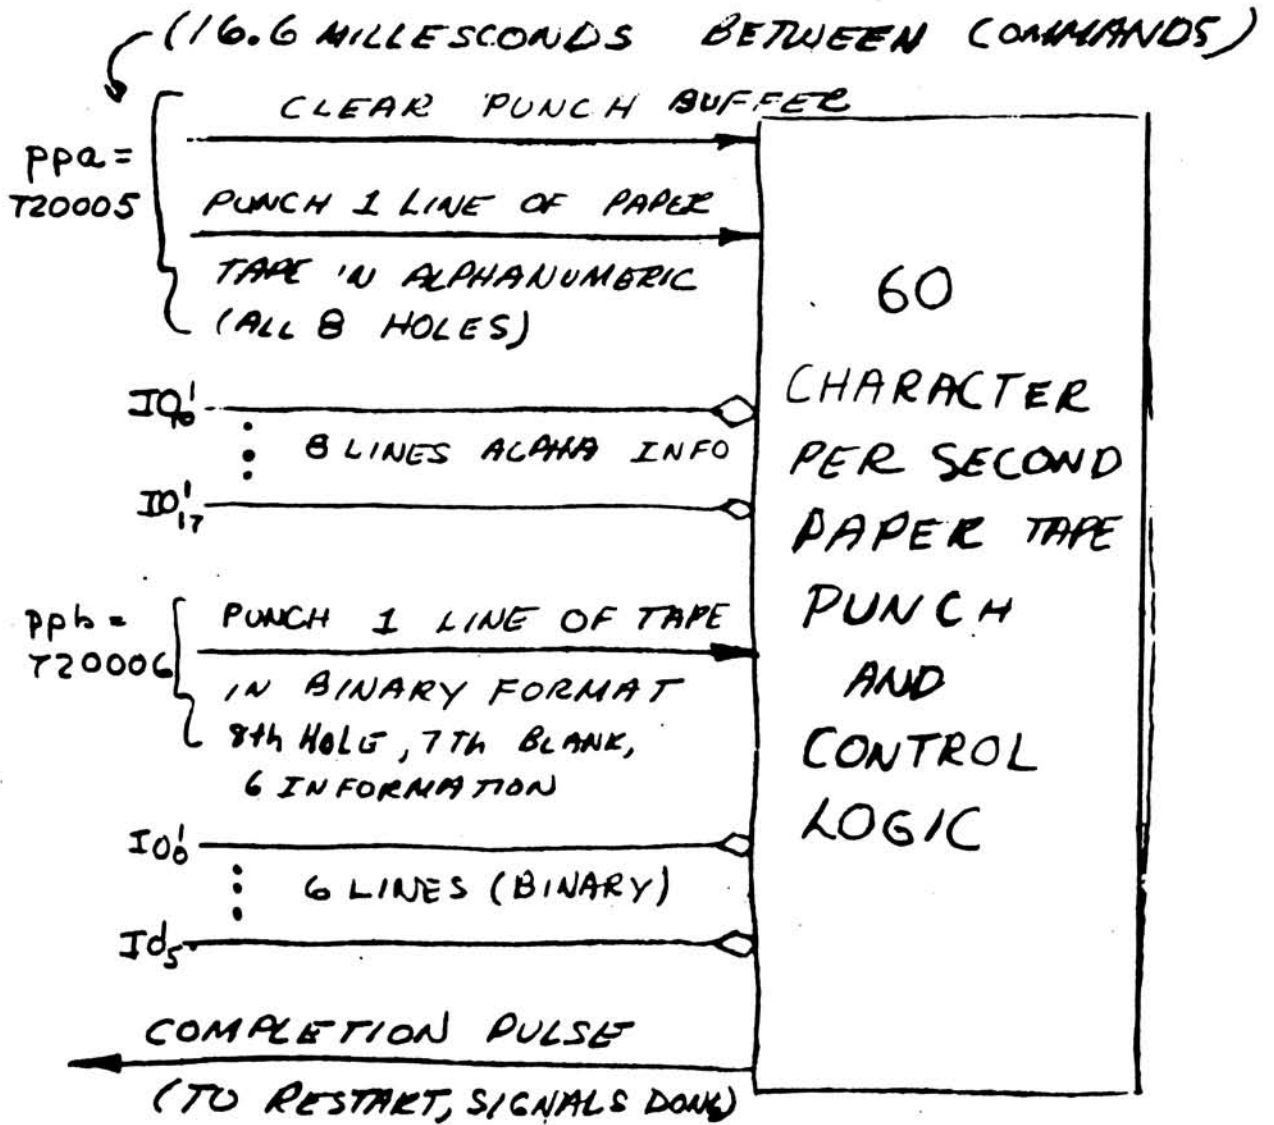 (16.6 MILLESCONDS BETWEEN COMMANDS)
CLEAR PUNCH BUFFER
ppa =
720005
PUNCH 1 LINE OF PAPER
TAPE IN ALPHANUMERIC
(ALL 8 HOLES)
IO¹₁₀
8 LINES ALPHA INFO
IO¹₁₇
ppb =
720006
PUNCH 1 LINE OF TAPE
IN BINARY FORMAT
8th HOLE, 7Th BLANK,
6 INFORMATION
IO¹₀
6 LINES (BINARY)
IO¹₅
COMPLETION PULSE
(TO RESTART, SIGNALS DONE)
60
CHARACTER
PER SECOND
PAPER TAPE
PUNCH
AND
CONTROL
LOGIC